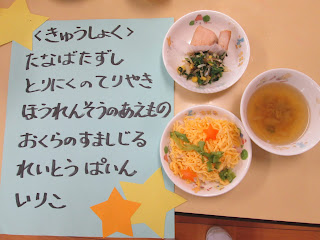 ＜きゅうしょく＞
たなばたずし
とりにくのてりやき
ほうれんそうのあえもの
おくらのすましじる
れいとうぱいん
いりこ